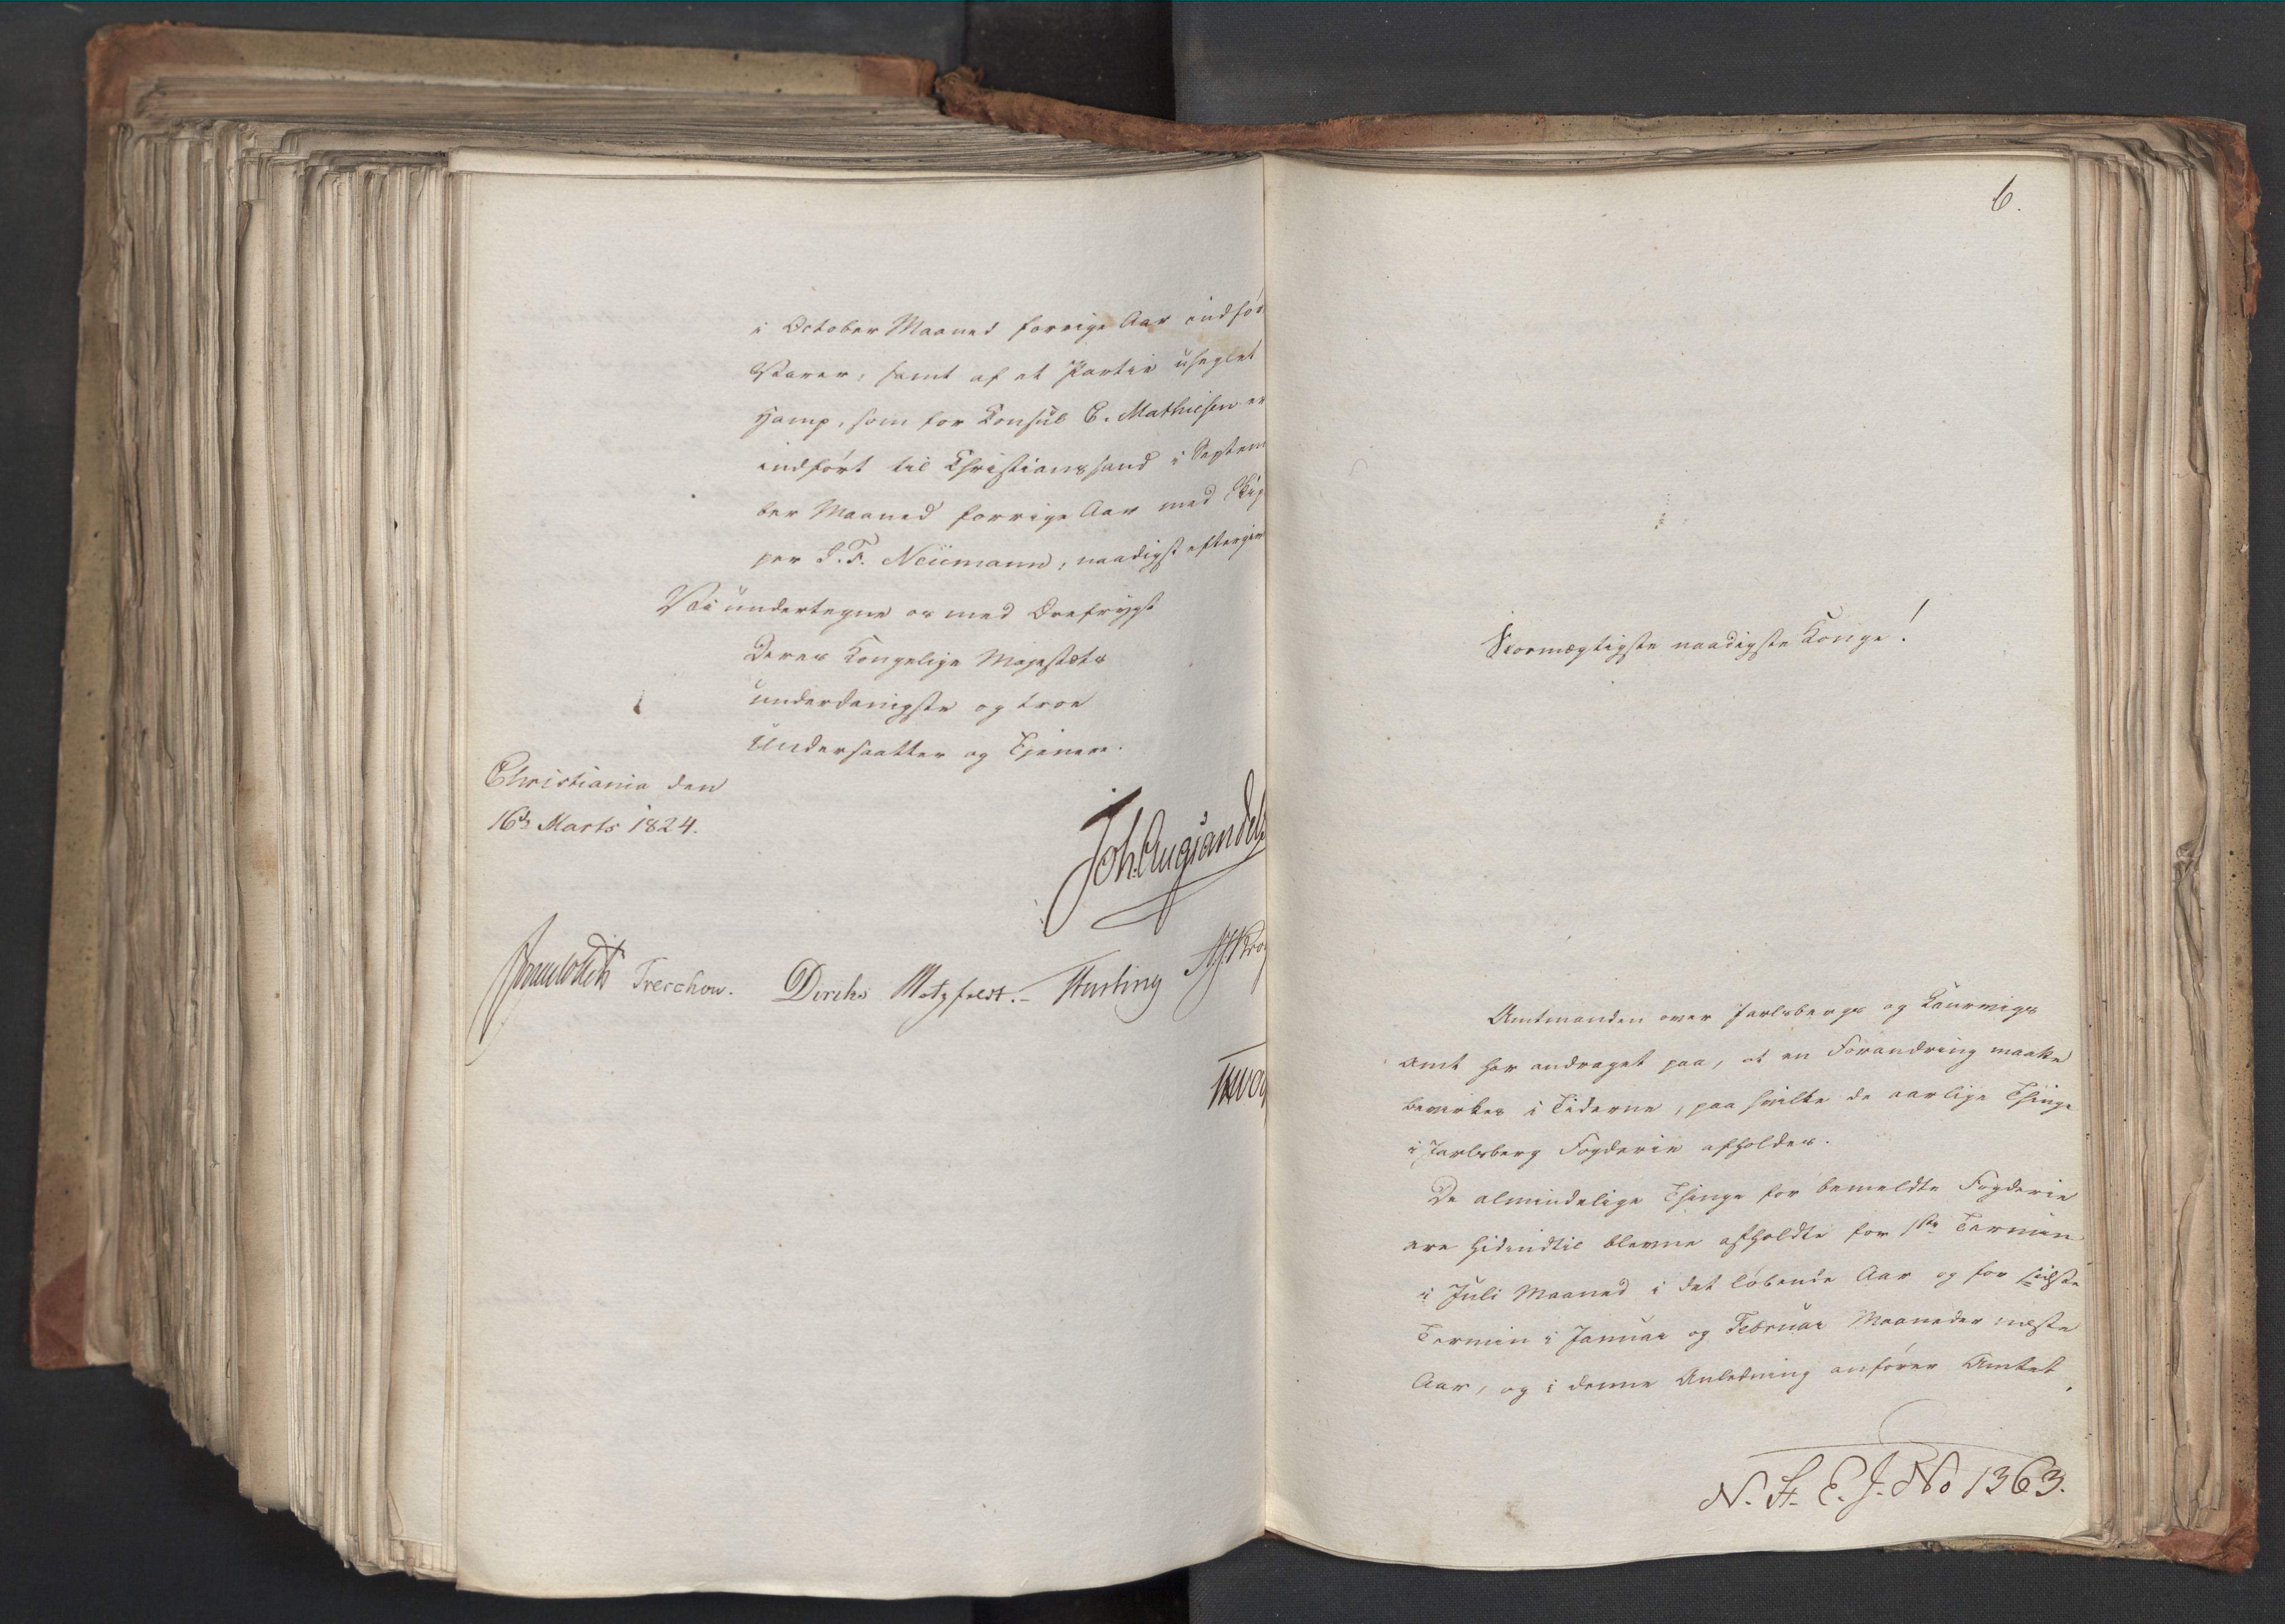 i October Maaned forrige Aar indfør
Varer, samt af et Partie uheglet
Hamp, som for Konsul C. Mathiesen er
indført til Christianssand i Septem
ber Maaned forrige Aar med Skip
per J. F. Neumann, naadigst eftergives
Vi undertegne os med Ærefrygt
Deres Kongelige Majestæts
underdanigste og troe
Undersaatter og Tjenere.
Christiania den
16de Marts 1824.
Joh. Aug Sandels
Sommerhielm Treschow. Diriks Motzfeldt. Fasting
6.
Stormægtigste naadigste Konge!
Amtmanden over Jarlsbergs og Laurvigs
Amt har andraget paa, at en Forandring maatte
bevirkes i Tiderne, paa hvilke de aarlige Thinge
i Jarlsberg Fogderie afholdes.
De almindelige Thinge for bemeldte Fogderie
ere hidindtil blevne afholdte for 1ste Termin
i Juli Maaned i det løbende Aar og for sidste
Termin i Januar og Februar Maaneder næste
Aar, og i denne Anledning anfører Amtet,
N. St. E. J. No 1363.